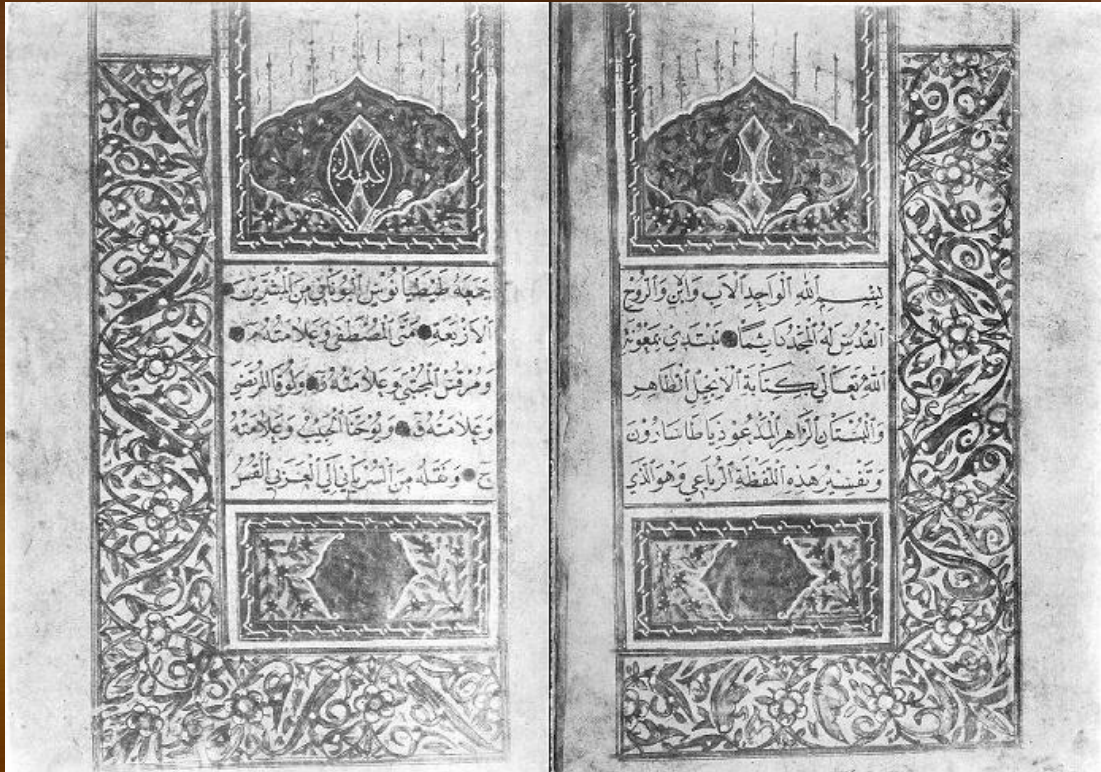 بِسْمِ ٱللهِ ٱلْوَاحِدِ ٱلْاَبِ وَٱلِابْنِ وَٱلرُّوحِ
ٱلْقُدُسِ لَهُ ٱلْمَجْدُ دَايِمًا نَبْتَدِي بِمَعُونَةِ
ٱللهِ تَعَالَي بِكِتَابَةِ ٱلْاِنْجِيلِ ٱلطَّاهِرِ
وَٱلْبُسْتَانِ ٱلزَّاهِرِ ٱلْمَدْعُو ذِيَاطَاسَارُونَ
وَتَفْسِيرُ هَذِهِ ٱللَّفْظَةِ ٱلرُّبَاعِي وَهُوَ ٱلَّذِي
جَمَعَهُ طَيْطِيَانُوسُ ٱلْيُونَانِي مِنَ ٱلْمُبَشِّرِينَ
ٱلْاَرْبَعَةِ مَتَّي ٱلْمُصْطَفَي وَعَلَامَتُهُ مَ
وَمَرْقُسَ ٱلْمُجْتَبَي وَعَلَامَتُهُ رَ وَلُوقَا ٱلْمُرْتَضَي
وَعَلَامَتُهُ قَ وَيُوحَنَّا ٱلْحَبِيبِ وَعَلَامَتُهُ
حَ وَنَقَلَهُ مِنَ ٱلسُّرْيَانِي اِلَي ٱلْعَرَبِي ٱلْقَسُّ